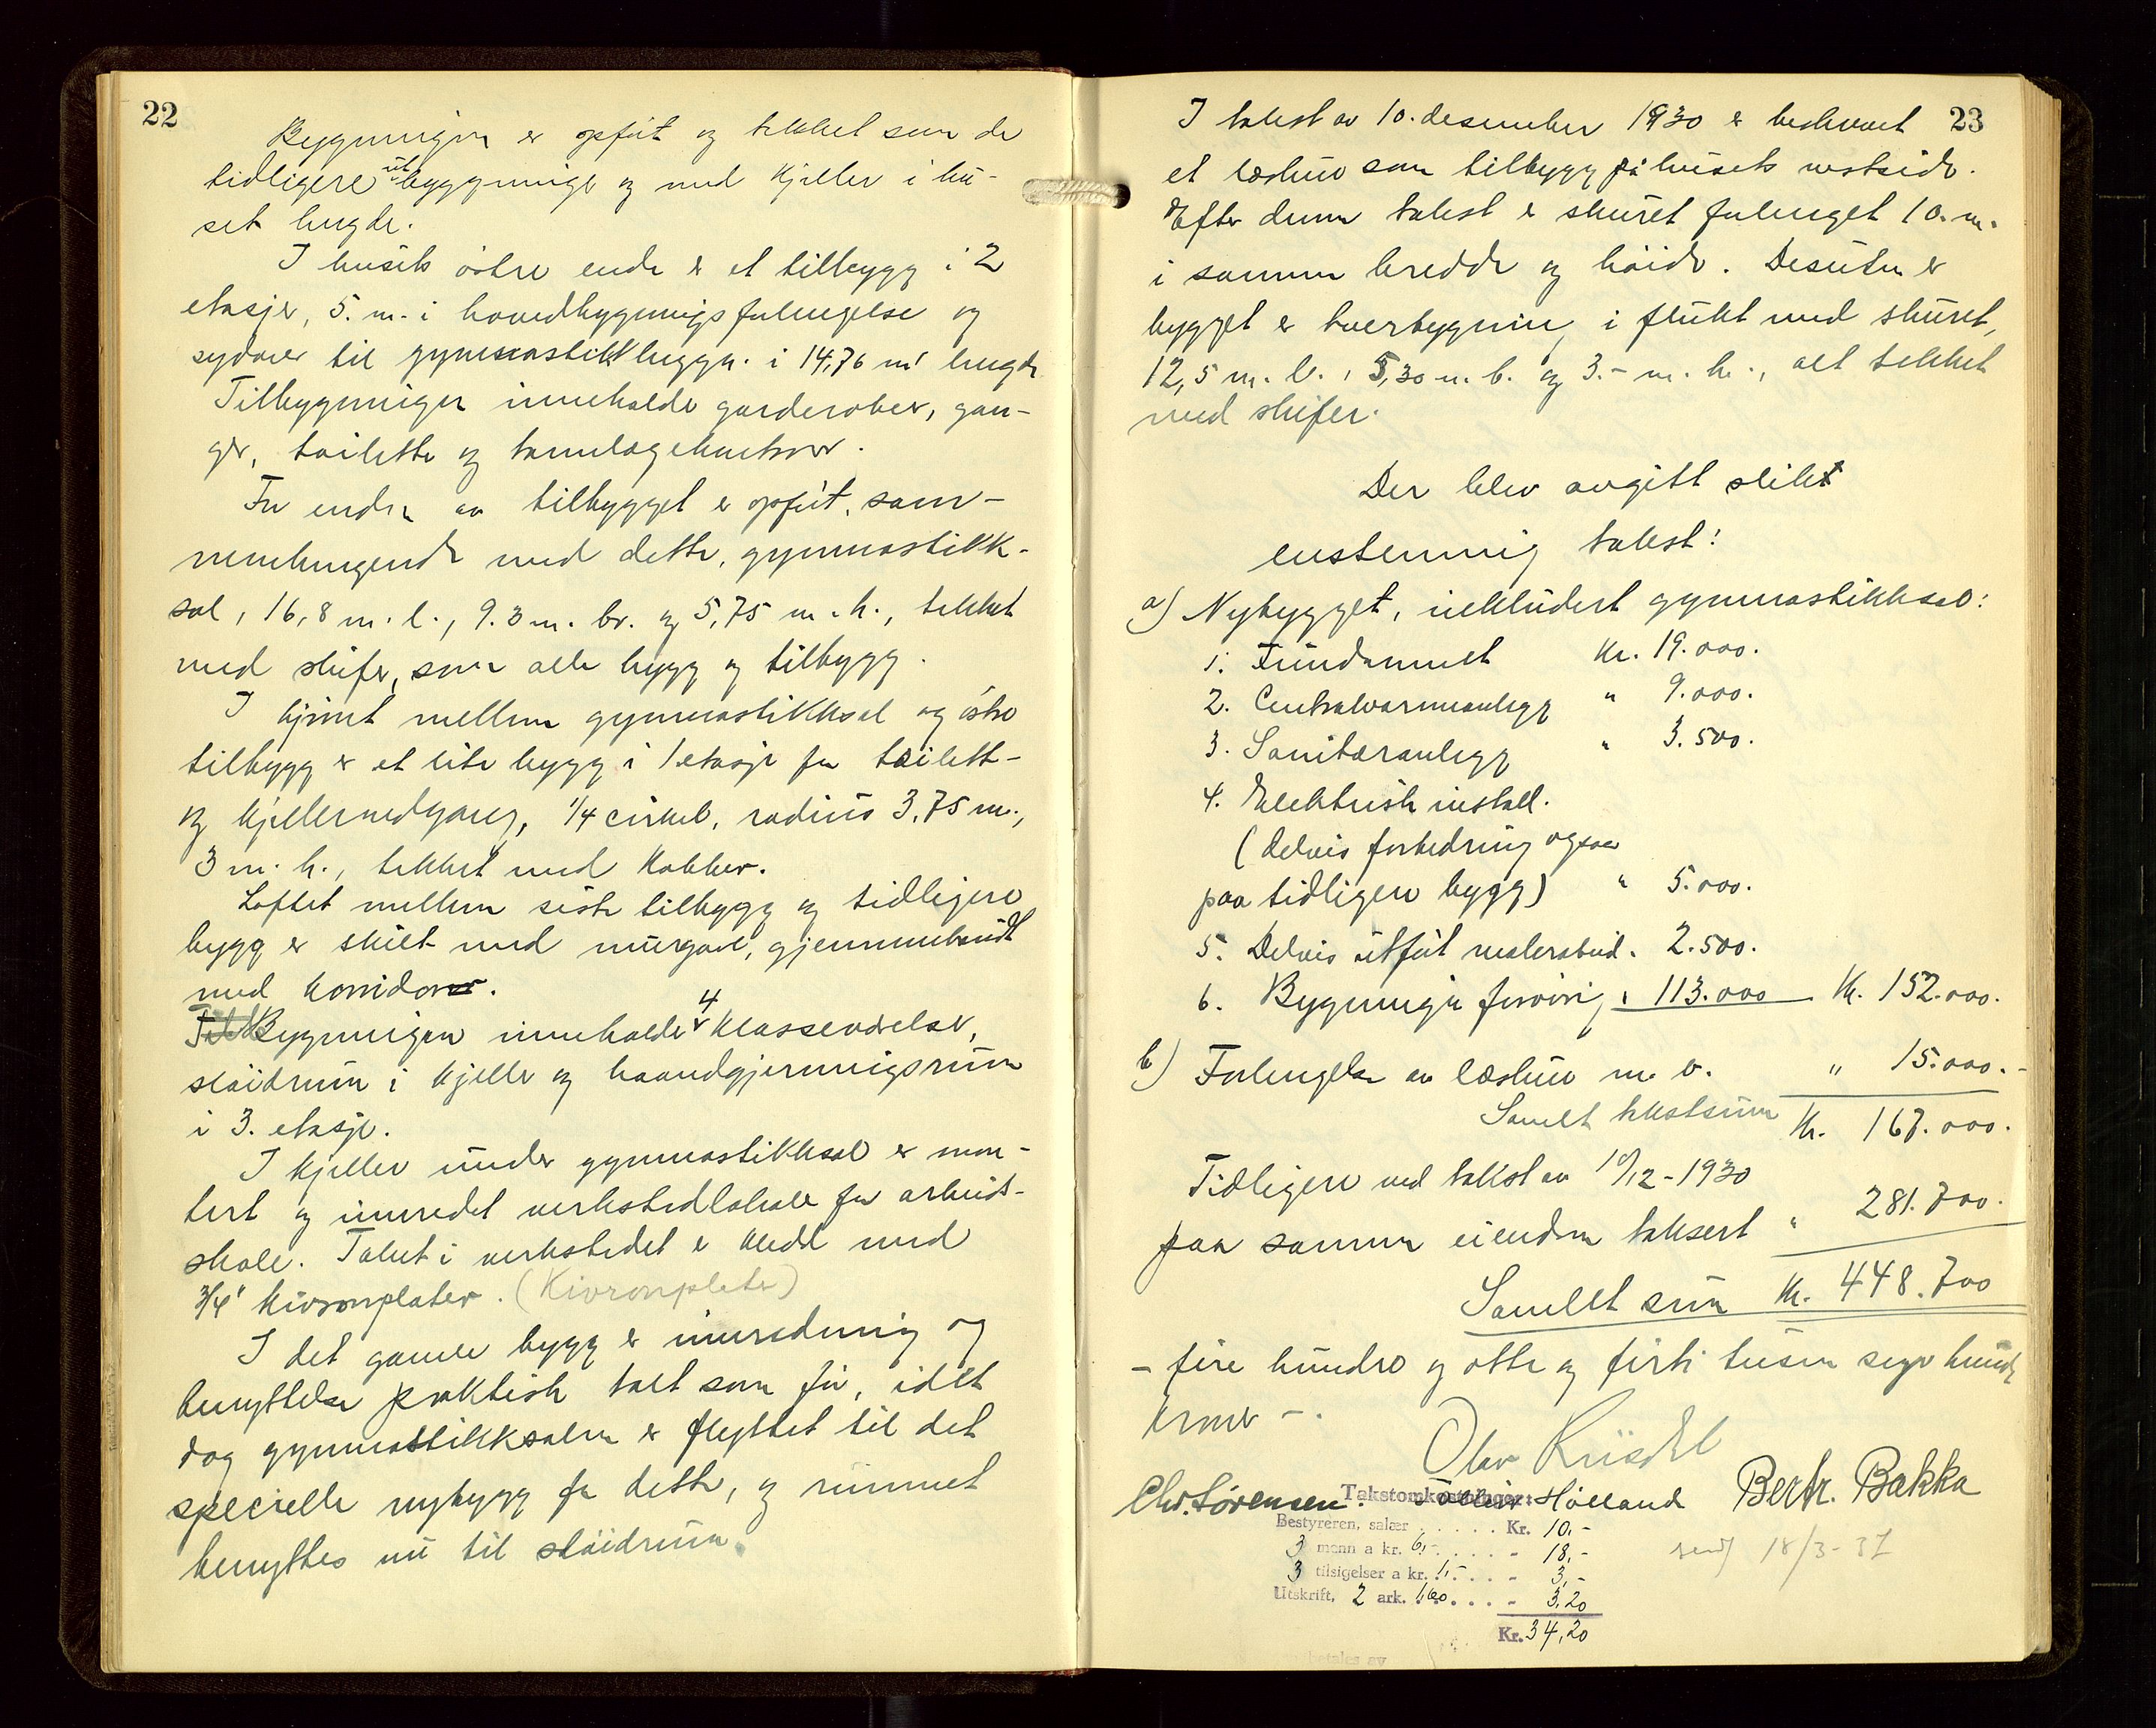 22
Bygningen er opført og tekket som de
tidligere utbygginger og med kjeller i hu-
sets lengde.
I husets östre ende er et tilbygg i 2
etasjer, 5. m. i hovedbygningsforlengelse og
sydover til gymnastikkbygn. i 14,76 m' lengde
Tilbygningen inneholder garderober, gan-
ger, toiletter og tannlægekontor.
For enden av tilbygget er opført, sam-
menhengende med dette, gymnastikk-
sal, 16,8 m. l., 9.3 m. br. og 5,75 m. h., tekket
med skifer, som alle bygg og tilbygg.
I hjørnet mellem gymnastikksal og østre
tilbygg er et lite bygg i 1 etasje for toilett-
og kjellernedgang, 1/4 cirkel, radius 3,75 m.,
3 m. h., tekket med kobber.
Loftet mellem siste tilbygg og tidligere
bygg er skilt med murgavl, gjennembrudt
med korridor.
Bygningen inneholder 4 klasseværelser,
sløidrum i kjeller og haandgjerningsrum
i 3. etasje.
I kjeller under gymnastikksal er mon-
tert og innredet verkstedlokale for arbeids-
skole. Taket i verkstedet er kledd med
3/4" kivronplater. (Kivronplater)
I det gamle bygg er innredning og
benyttelse praktisk talt som før, idet
dog gymnastikksalen er flyttet til det
specielle nybygg for dette, og rummet
benyttes nu til sløidrum.
23
I takst av 10. desember 1930 er beskrevet
et læskur som tilbygg på husets vestside.
Efter denne takst er skuret forlenget 10. m.
i samme bredde og høide. Desuten er
bygget er tverbygning, i flukt med skuret,
12,5 m. l., 5,30 m. b. og 3.- m. h., alt tekket
med skifer.
Der blev avgitt slikt
enstemmig takst:
a) Nybygget, inkludert gymnastikksal:
1. Fundament Kr. 19.000.
2. Centralvarmeanlegg " 9.000.
3. Sanitæranlegg " 3.500.
4. Elektrisk install.
(delvis forbedring ogsaa
paa tidligere bygg) " 5.000.
5. Delvis utført malerarbeid. 2.500.
6. Bygningen forøvrig " 113.000 Kr. 152.000.
b) Forlengelse av læskur m. v. " 15.000.-
Samlet takstsum Kr. 167.000.
Tidligere ved takst av 10/12-1930
paa samme eiendom taksert " 281.700.
Samlet sum Kr. 448.700
- fire hundre og otte og firti tusen syv hundre
kroner -.
Chr. Sørensen. Hölland Bertr. Bakka
Takstomkostninger:
Bestyreren, salær . . . . . Kr. 10,-
3 mann a kr. 6,- . . . . - 18,-
3 tilsigelser a kr. 1,- . . . - 3,-
Utskrift, 2 ark. 1,60 . . . . - 3,20
Kr. 34,20
send 18/3-37
betales av